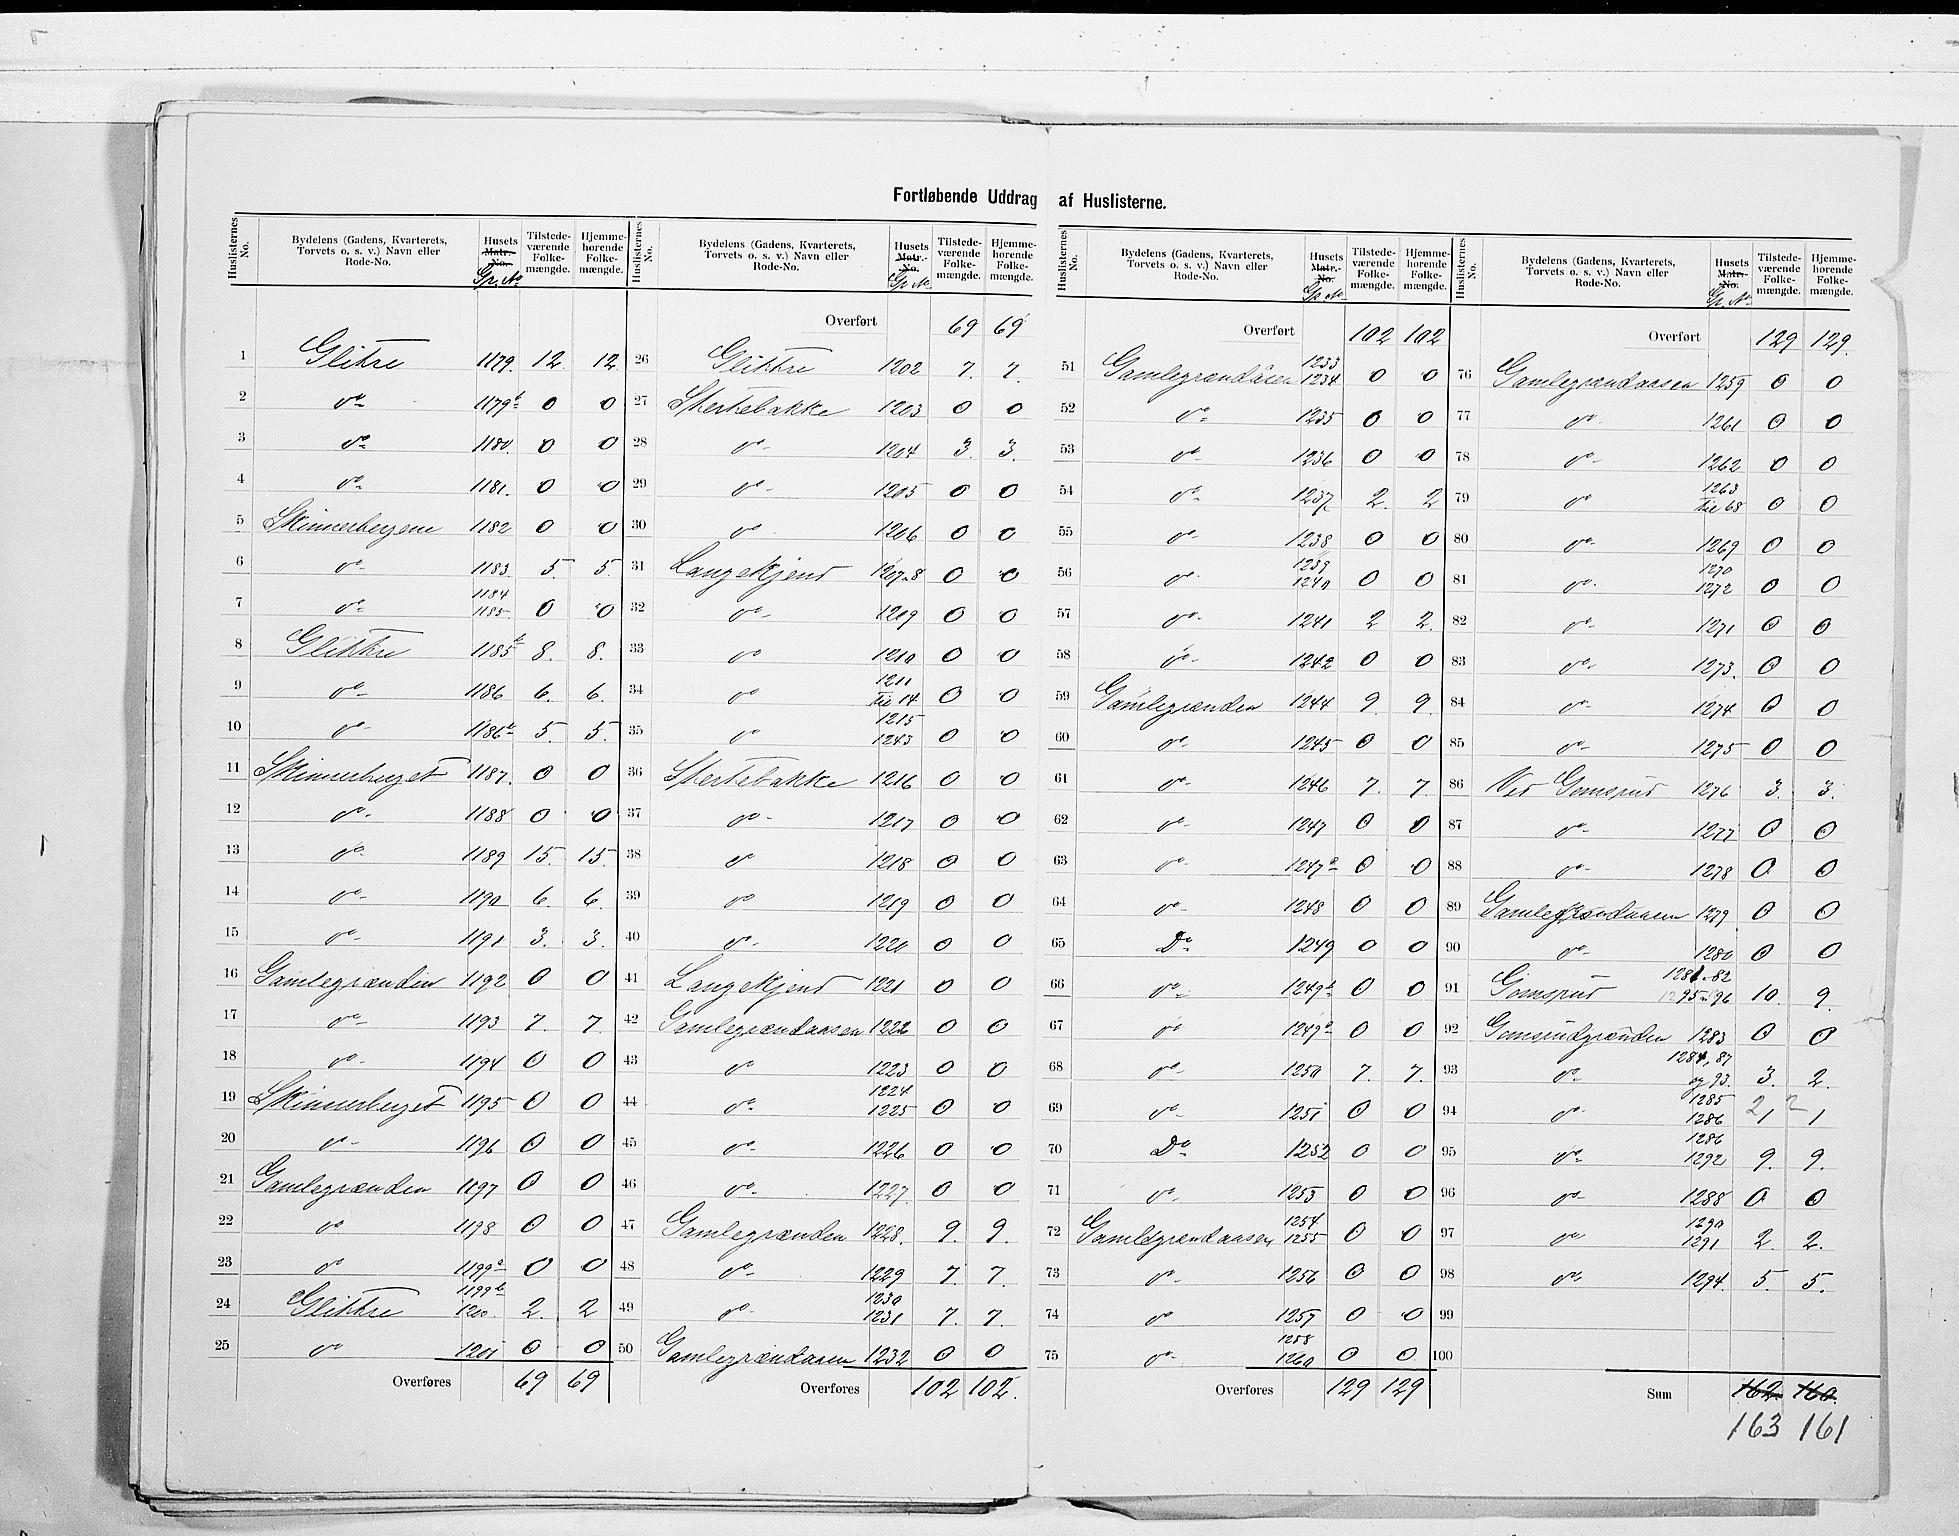 Fortløbende Uddrag af Huslisterne.
Huslisternes No. Bydelens (Gadens, Kvarterets, Torvets o. s. v.) Navn eller Rode-No. Husets Matr.-No. Gr. No. Tilstedeværende Folkemængde. Hjemmehørende Folkemængde.
1 Glitre 1179. 12. 12.
2 do 1179b 0 0
3 do 1180. 0 0
4 do 1181. 0 0
5 Skinnerbergene 1182 0 0
6 do 1183. 5. 5.
7 do 1184 1185. 0 0
8 Glittre 1185b 8. 8.
9 do 1186 6. 6.
10 do 1186b 5. 5.
11 Skinnerberget 1187. 0 0
12 do 1188 0 0
13 do 1189 15. 15.
14 do 1190 6. 6.
15 do 1191 3. 3.
16 Gamlegrænden 1192 0 0
17 do 1193 7. 7.
18 do 1194 0 0
19 Skinnerberget 1195 0 0
20 do 1196 0 0
21 Gamlegrænden 1197 0 0
22 do 1198 0 0
23 do 1199a 0 0
24 Glittre 1199b 1200. 2. 2
25 do 1201 0 0
Overføres 69 69
Huslisternes No. Bydelens (Gadens, Kvarterets, Torvets o. s. v.) Navn eller Rode-No. Husets Matr.-No. Gr. No. Tilstedeværende Folkemængde. Hjemmehørende Folkemængde.
Overført 69 69
26 Glittre 1202 7. 7.
27 Stertebakke 1203 0 0
28 do 1204 3. 3.
29 do 1205 0 0
30 do 1206 0 0
31 Langekjend 1207-8 0 0
32 do 1209 0 0
33 do 1210 0 0
34 do 1211 til 14 0 0
35 do 1215 1243 0 0
36 Stertebakke 1216 0 0
37 do 1217 0 0
38 do 1218 0 0
39 do 1219 0 0
40 do 1220 0 0
41 Langekjend 1221 0 0
42 Gamlegrændaasen 1222 0 0
43 do 1223 0 0
44 do 1224 1225 0 0
45 do 1226 0 0
46 do 1227. 0 0
47 Gamlegrænden 1228. 9. 9.
48 do 1229 7. 7.
49 do 1230 1231 7. 7.
50 Gamlegrændaasen 1232 0 0
Overføres 102 102.
Huslisternes No. Bydelens (Gadens, Kvarterets, Torvets o. s. v.) Navn eller Rode-No. Husets Matr.-No. Gr. No. Tilstedeværende Folkemængde. Hjemmehørende Folkemængde.
Overført 102 102
51 Gamlegrændåsen 1233 1234 0 0
52 do 1235 0 0
53 do 1236 0 0
54 do 1237 2. 2
55 do 1238 0 0
56 do 1239 1240 0 0
57 do 1241 2 2.
58 do 1242 0 0
59 Gamlegrænden 1244 9. 9.
60 do 1245 0 0
61 do 1246 7. 7.
62 do 1247 0 0
63 do 1247a 0 0
64 do 1248 0 0
65 Do 1249 0 0
66 do 1249b 0 0
67 do 1249a 0 0
68 do 1250 7. 7.
69 do 1251 0 0
70 Do 1252 0 0
71 do 1253 0 0
72 Gamlegrændaasen 1254 1255 0 0
73 do 1256 0 0
74 do 1257 0 0
75 do 1258 1260 0 0.
Overføres 129 129
Huslisternes No. Bydelens (Gadens, Kvarterets, Torvets o. s. v.) Navn eller Rode-No. Husets Matr.-No. Gr. No. Tilstedeværende Folkemængde. Hjemmehørende Folkemængde.
Overført 129 129.
76 Gamlegrændaasen 1259 0 0
77 do 1261 0 0
78 do 1262 0 0
79 do 1263 til 68 0 0
80 do 1269 0 0
81 do 1270 1272 0 0
82 do 1271 0 0
83 do 1273. 0 0
84 do 1274 0 0
85 do 1275 0 0
86 Ved Gomsrud 1276 3. 3.
87 do 1277 0 0
88 do 1278 0. 0
89 Gamlegrændaasen 1279 0 0
90 do 1280 0 0
91 Gomsrud 1281-82 1295-96 10. 9.
92 Gomsrudgrænden 1283 0 0
93 do 1284, 87 og 93. 3. 2.
94 do 1285 1286 2 1 2 1
95 do 1286 1292 9. 9.
96 do 1288 0 0
97 do 1290 1291 2. 2.
98 do 1294. 5. 5.
99
100
Sum 162. 160.
163 161